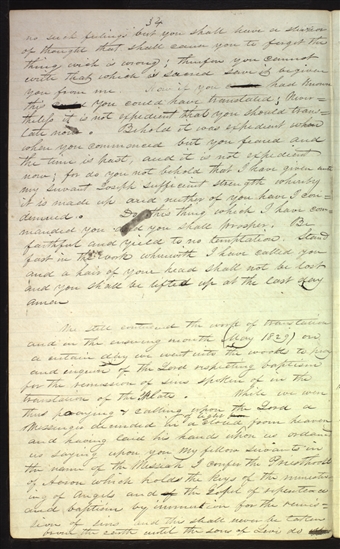 34
no such feelings but you shall have a stupor
of thought that shall cause you to forget the
thing which is wrong; therefore you cannot
write that which is sacred save it be given
you from me. Now if you had known
this you could have translated; Never-
theless it is not expedient that you should trans-
late now. Behold it was expedient when
when you commenced but you feared and
the time is past, and it is not expedient
now; for do you not behold that I have given unto
my servant Joseph sufficient strength whereby
it is made up and neither of you have I con-
demned. Do this thing which I have com-
manded you and you shall prosper. Be
faithful and yield to no temptation. Stand
fast in the work wherewith I have called you
and a hair of your head shall not be lost
and you shall be lifted up at the last day
amen
We still continued the work of translation
and in the ensuing month (May 1829) on
a certain day we went into the woods to pray
and enquire of the Lord respecting baptism
for the remission of sins spoken of in the
translation of the plates. While we were
thus praying & calling upon the Lord a
Messenger descended in a cloud of light from heaven
and having laid his hands upon us ordained
us saying upon you my fellow servants in
the name of the Messiah I confer the Priesthood
of Aaron which holds the Keys of the minister-
ing of Angels and of the Gospel of repentance
and baptism by immersion for the remis-
sion of sins and this shall never be taken
from the earth until the sons of Levi do